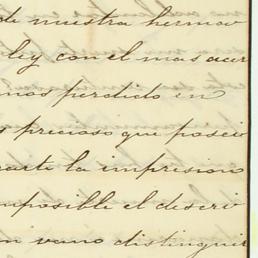 de nuestra hermo
ley con el mas acer
mos perdido en
s precioso que posei
rarte la impresion
mposible el descri
n vano distinguir